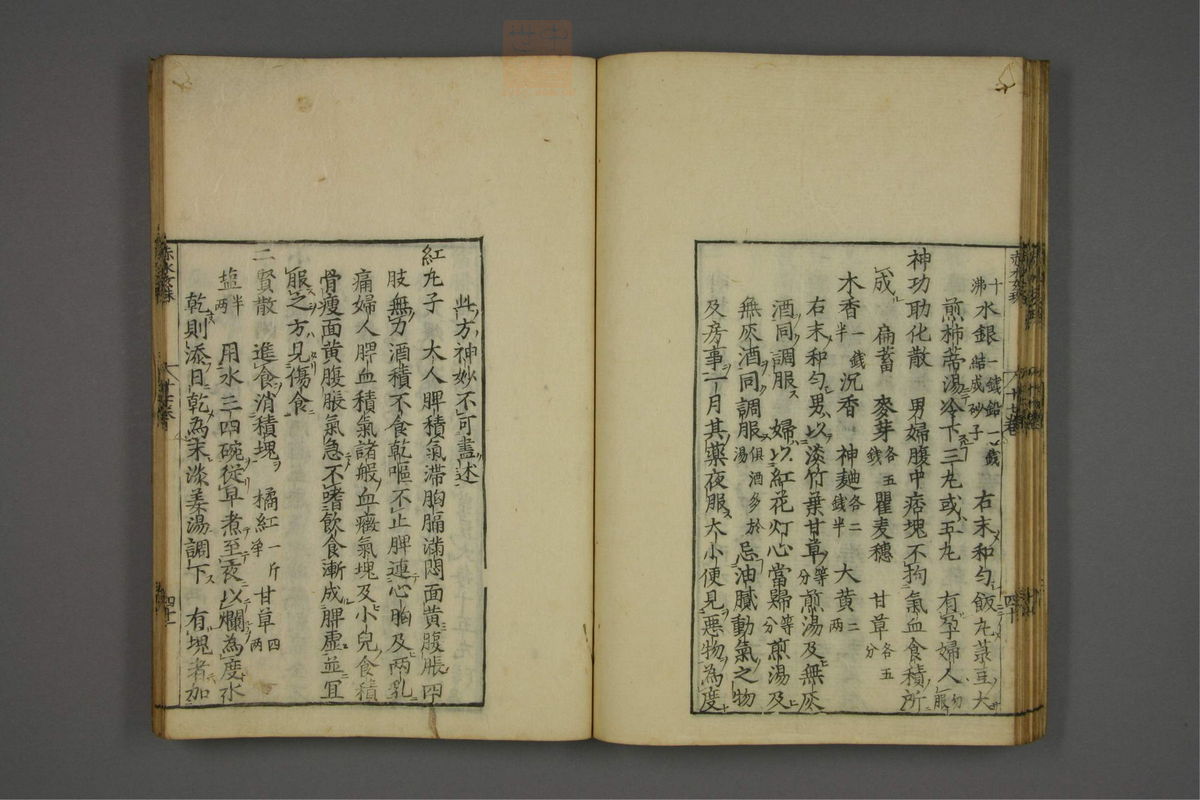 沸十水銀一錢鉛一錢結成砂子右末和勻飯丸菉豆大
煎柿蒂湯冷下三丸或五丸有孕婦人勿服
神功助化散男婦腹中痞塊不拘氣血食積所
成扁蓄麥芽各五錢瞿麦穗甘草各五分
木香一錢半沉香神麯各二錢半大黄二兩
右末和勻男以淡竹葉甘草等分煎湯及無灰
酒同調服婦以紅花灯心當歸等分煎湯及
無灰酒同調服俱酒多於湯忌油膩動氣之物
及房事一月其藥夜服大小便見悪物為度
此方神妙不可盡述
紅丸子大人脾積氣滯胸膈滿悶面黄腹脹四
肢無力酒積不食乾嘔不止脾連心胸及两乳
痛婦人脾血積氣諸般血癥氣塊及小兒食積
骨瘦面黄腹脹氣急不嗜飲食漸成脾虚並宜
服之方見傷食
二賢散進食消積塊橘紅一斤净甘草四兩
塩半两用水三四碗従早煮至夜以爛為度水
乾則添日乾為末淡姜湯調下有塊者加
赤水玄珠
十七卷
四十
赤水玄珠
十七卷
四十一